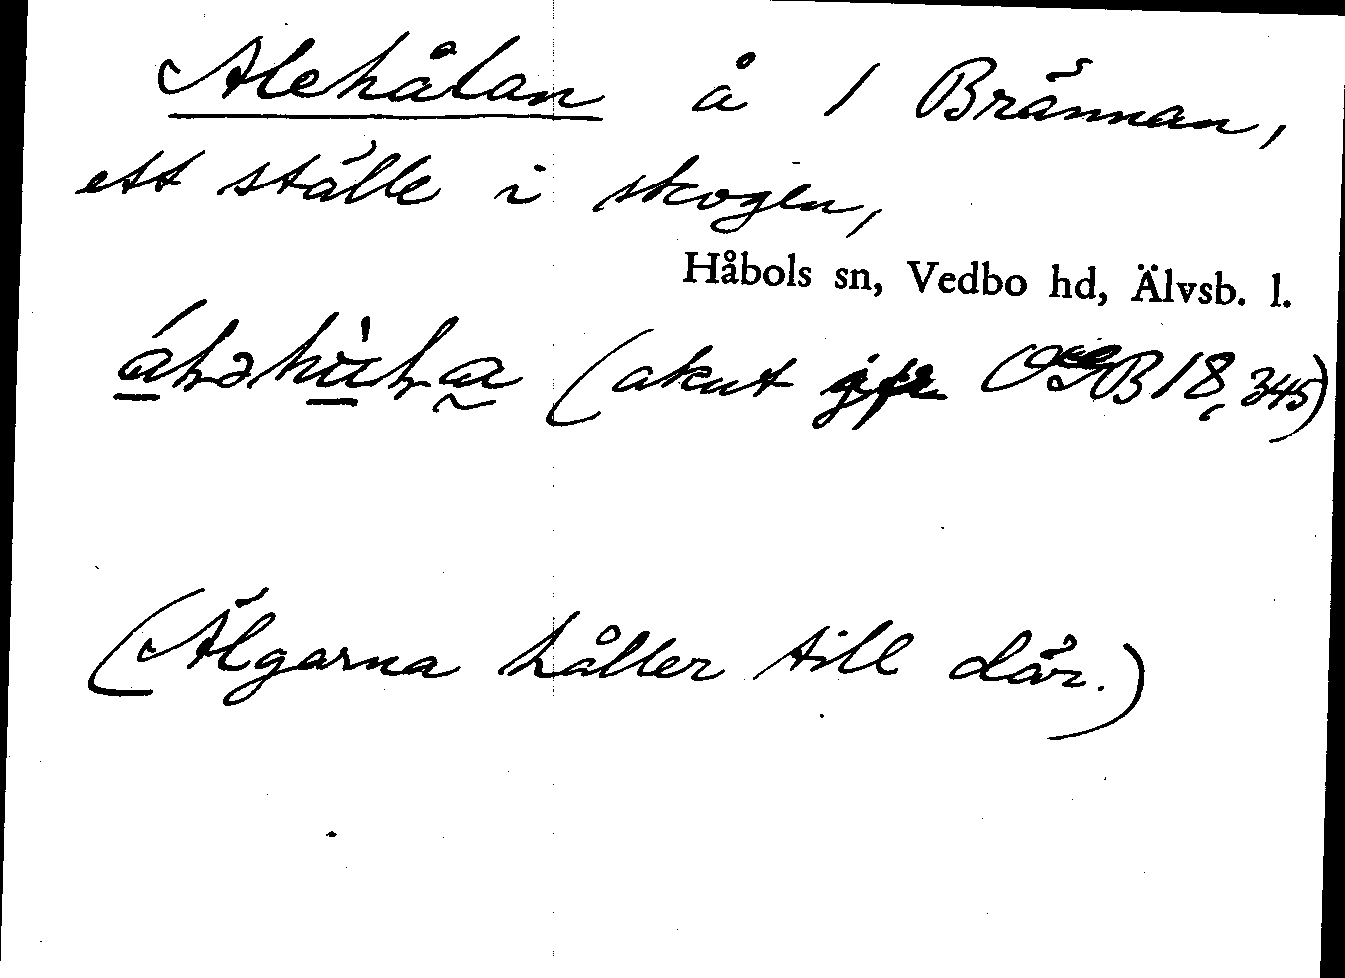 Alehålan å 1 Brännan,
ett ställe i skogen,
Håbols sn, Vedbo hd, Älvsb. l.
(akut jfr OGB 18, 345)
(Älgarna håller till där.)